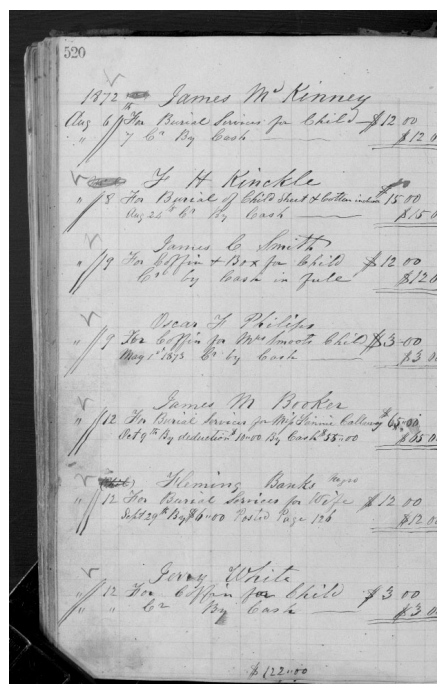 520
1872 James McKinney
Aug 6th For Burial Services for Child $12 00
" 7 Cr By Cash $12 0
F H Kinckle
" 8 For Burial of Child Sheet & Cotton $15 00
Aug 24th Cr By Cash $15 0
James C Smith
" 9 For Coffin & Box for Child $12 00
Cr by Cash in full $12 0
Oscar F Philips
" 9 For Coffin for Mrs Smoots Child $3 00
May 1st 1873 Cr by Cash $3 00
James M Booker
" 12 For Burial Services for Miss Finnie Calloway $65.00
Oct 9th By deduction $10.00 By Cash $55.00 $65 00
Fleming Banks Negro
" 12 For Burial Services for Wife $12 00
Sept 29th By $6.00 Posted Page 126 $12 0
Jerry White
" 12 For Coffin for Child $3 00
" " Cr By Cash $3 00
$122.00